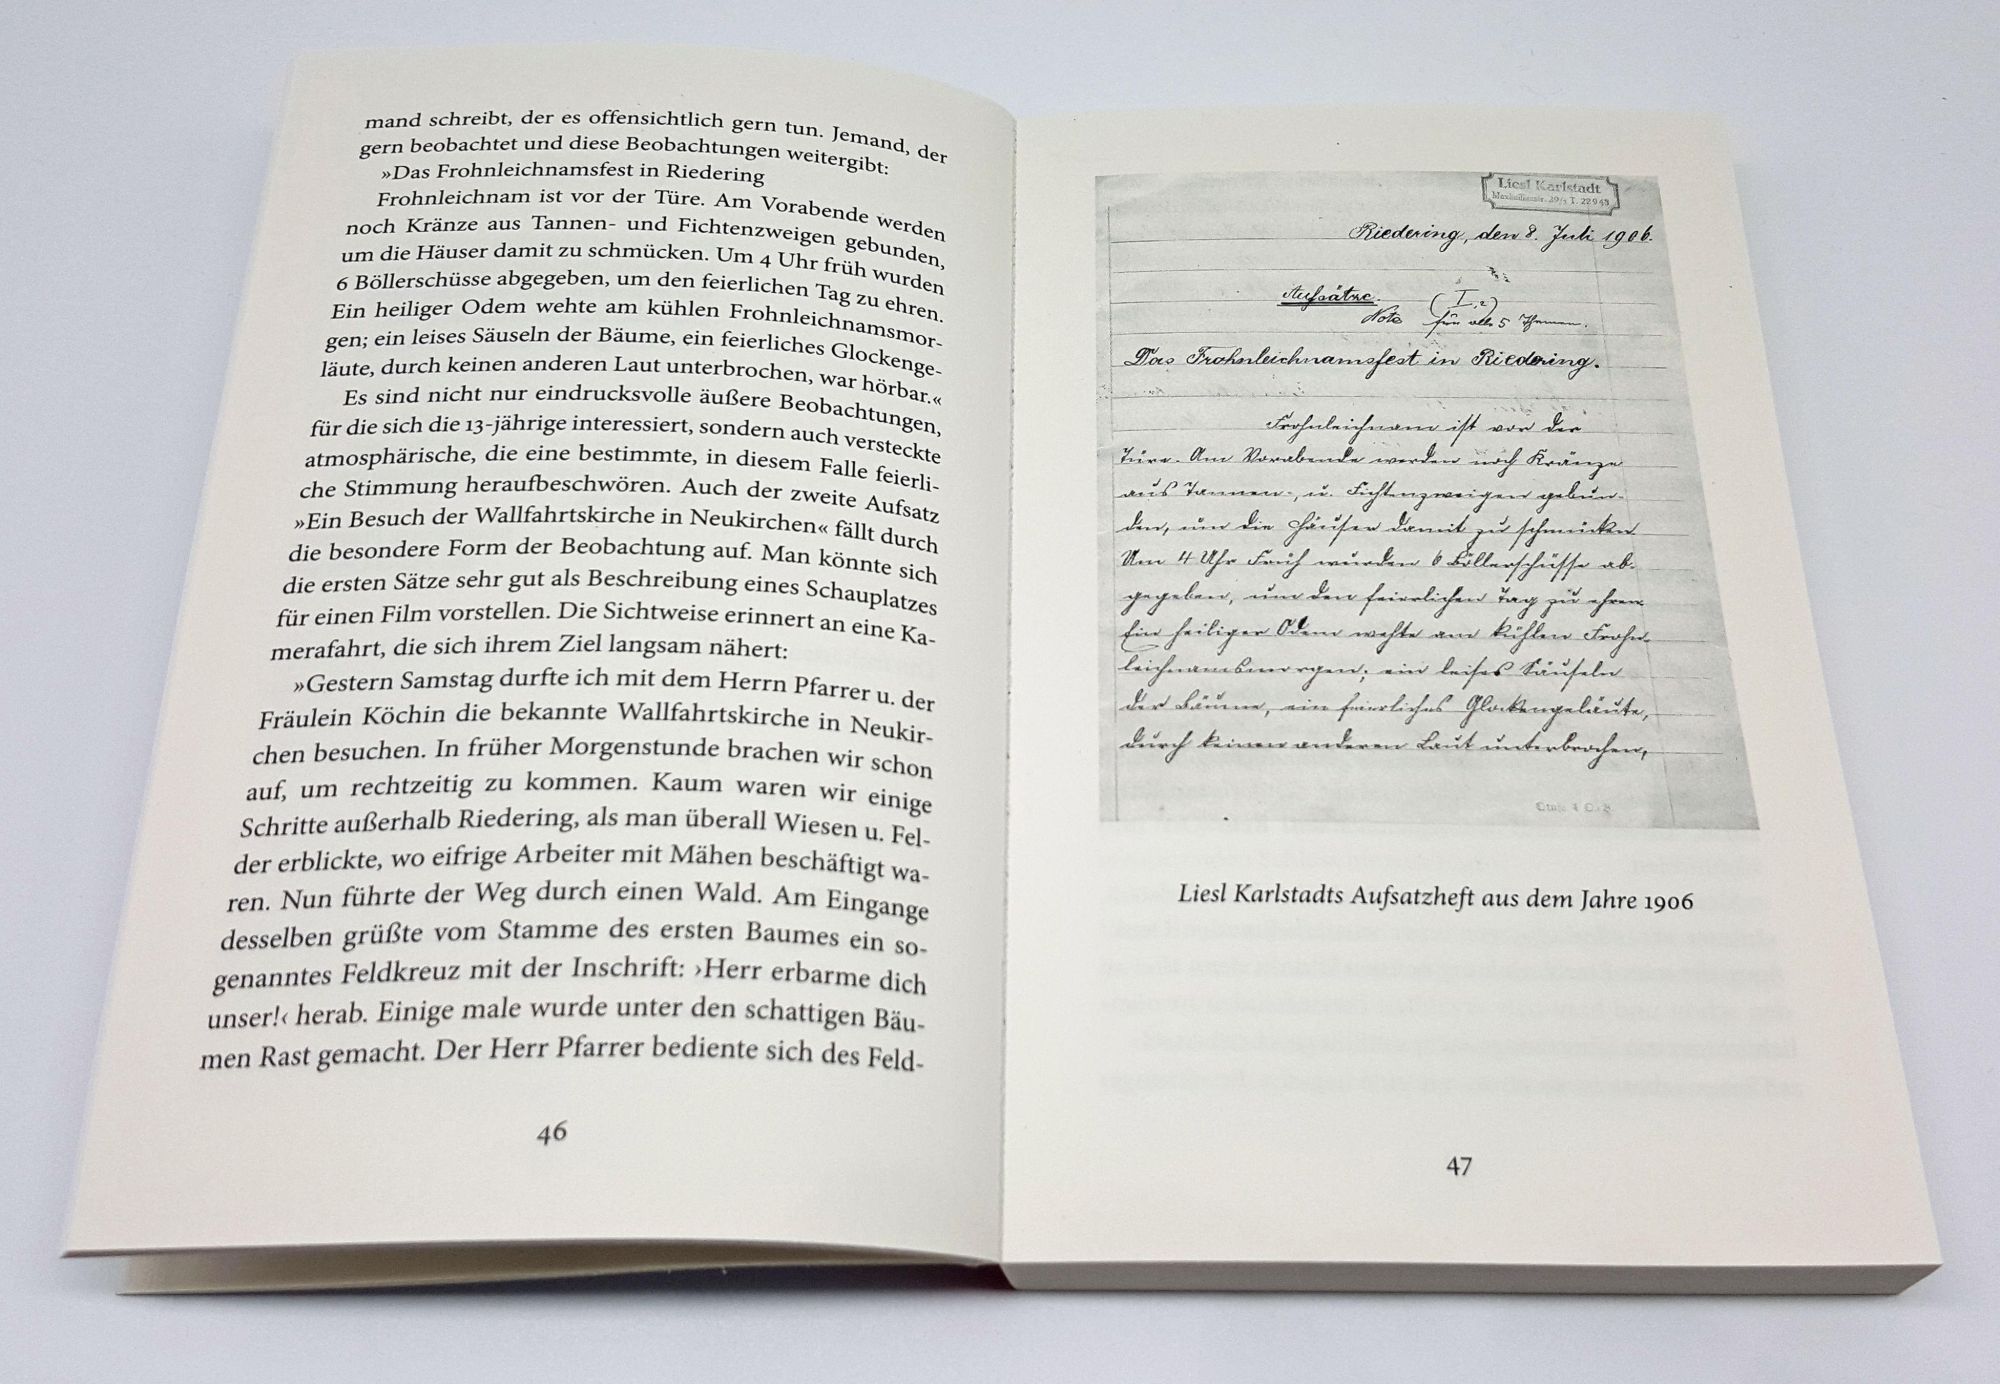 mand schreibt, der es offensichtlich gern tun. Jemand, der
gern beobachtet und diese Beobachtungen weitergibt:
»Das Frohnleichnamsfest in Riedering
Frohnleichnam ist vor der Türe. Am Vorabende werden
noch Kränze aus Tannen- und Fichtenzweigen gebunden,
um die Häuser damit zu schmücken. Um 4 Uhr früh wurden
6 Böllerschüsse abgegeben, um den feierlichen Tag zu ehren.
Ein heiliger Odem wehte am kühlen Frohnleichnamsmor-
gen; ein leises Säuseln der Bäume, ein feierliches Glockenge-
läute, durch keinen anderen Laut unterbrochen, war hörbar.«
Es sind nicht nur eindrucksvolle äußere Beobachtungen,
für die sich die 13-jährige interessiert, sondern auch versteckte
atmosphärische, die eine bestimmte, in diesem Falle feierli-
che Stimmung heraufbeschwören. Auch der zweite Aufsatz
»Ein Besuch der Wallfahrtskirche in Neukirchen« fällt durch
die besondere Form der Beobachtung auf. Man könnte sich
die ersten Sätze sehr gut als Beschreibung eines Schauplatzes
für einen Film vorstellen. Die Sichtweise erinnert an eine Ka-
merafahrt, die sich ihrem Ziel langsam nähert:
»Gestern Samstag durfte ich mit dem Herrn Pfarrer u. der
Fräulein Köchin die bekannte Wallfahrtskirche in Neukir-
chen besuchen. In früher Morgenstunde brachen wir schon
auf, um rechtzeitig zu kommen. Kaum waren wir einige
Schritte außerhalb Riedering, als man überall Wiesen u. Fel-
der erblickte, wo eifrige Arbeiter mit Mähen beschäftigt wa-
ren. Nun führte der Weg durch einen Wald. Am Eingange
desselben grüßte vom Stamme des ersten Baumes ein so-
genanntes Feldkreuz mit der Inschrift: ›Herr erbarme dich
unser!‹ herab. Einige male wurde unter den schattigen Bäu-
men Rast gemacht. Der Herr Pfarrer bediente sich des Feld-
46
Liesl Karlstadt
Maximilianstr. T. 22948
Riedering, den 8. Juli 1906.
Aufsätze.
Note (I,2)
für alle 5 Themen.
Das Frohnleichnamsfest in Riedering.
Frohnleichnam ist vor der
Türe. Am Vorabende werden noch Kränze
aus Tannen-, u. Fichtenzweigen gebun-
den, um die Häuser damit zu schmücken
Um 4 Uhr Früh wurden 6 Böllerschüsse ab-
gegeben, um den feierlichen Tag zu ehren.
Ein heiliger Odem wehte am kühlen Frohn-
leichnamsmorgen; ein leises Säuseln
der Bäume, ein feierliches Glockengeläute,
durch keinen anderen Laut unterbrochen,
Liesl Karlstadts Aufsatzheft aus dem Jahre 1906
47